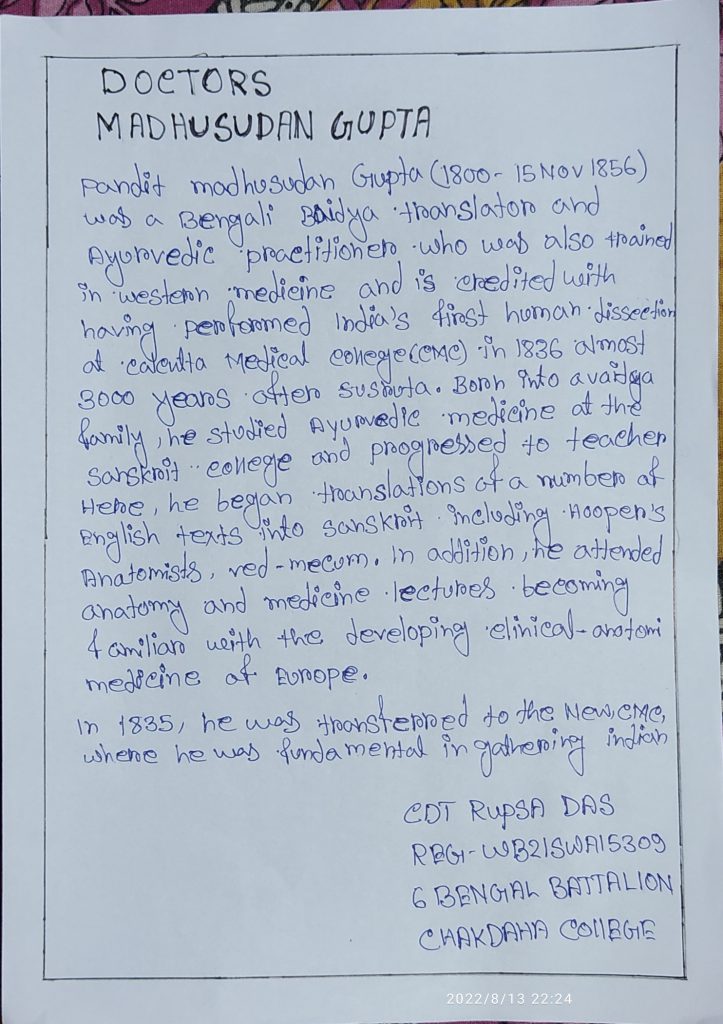 DOCTORS
MADHUSUDAN GUPTA
Pandit madhusudan Gupta (1800 - 15 NOV 1856)
was a Bengali Baidya translator and
Ayurvedic practitioner who was also trained
in western medicine and is credited with
having performed India's first human dissection
at calcutta Medical college (CMC) in 1836 almost
3000 years after susruta. Born into a vaidya
family, he studied Ayurvedic medicine at the
Sanskrit college and progressed to teacher
Here, he began translations of a number of
English texts into sanskrit including Hooper's
Anatomists, ved-mecum. In addition, he attended
anatomy and medicine lectures becoming
familiar with the developing clinical-anotomi
medicine of Europe.
In 1835, he was transferred to the New, CMC,
where he was fundamental in gathering indian
CDT RUPSA DAS
REG- WB21SWA15309
6 BENGAL BATTALION
CHAKDAHA COllEGE
2022/8/13 22:24